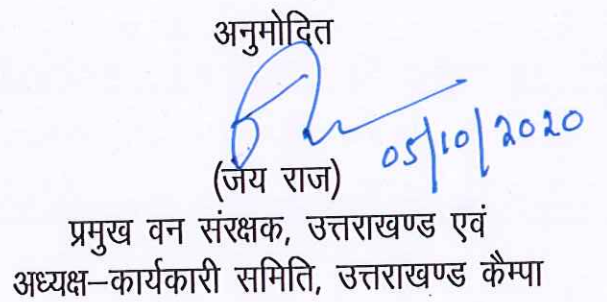 अनुमोदित
05/10/2020
(जय राज)
प्रमुख वन संरक्षक, उत्तराखण्ड एवं
अध्यक्ष–कार्यकारी समिति, उत्तराखण्ड कैम्पा